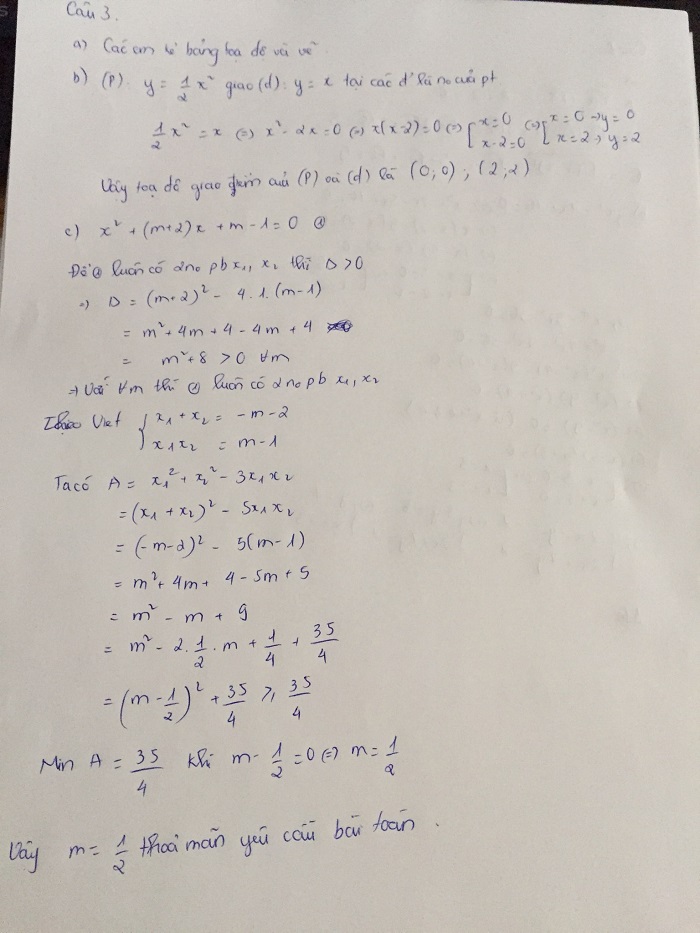 Câu 3.
a) Các em kẻ bảng toạ độ và vẽ
b) (P): y = 1/2 x² giao (d): y = x tại các đ' là no của pt
1/2 x² = x (=) x² - 2x = 0 (=) x(x-2) = 0 (=) [x=0 x-2=0 (=) [x=0 → y=0 x=2 → y=2
Vậy toạ độ giao điểm của (P) và (d) là (0;0); (2;2)
c) x² + (m+2)x + m - 1 = 0 @
Để @ luôn có 2 no pb x₁, x₂ thì Δ > 0
=) Δ = (m+2)² - 4.1.(m-1)
= m² + 4m + 4 - 4m + 4
= m² + 8 > 0 ∀m
=> Với ∀m thì @ luôn có 2 no pb x₁, x₂
Theo Viet { x₁ + x₂ = -m-2
x₁x₂ = m-1
Ta có A = x₁² + x₂² - 3x₁x₂
= (x₁ + x₂)² - 5x₁x₂
= (-m-2)² - 5(m-1)
= m² + 4m + 4 - 5m + 5
= m² - m + 9
= m² - 2.1/2.m + 1/4 + 35/4
= (m - 1/2)² + 35/4 ≥ 35/4
Min A = 35/4 khi m - 1/2 = 0 (=) m = 1/2
Vậy m = 1/2 thoả mãn yêu cầu bài toán.